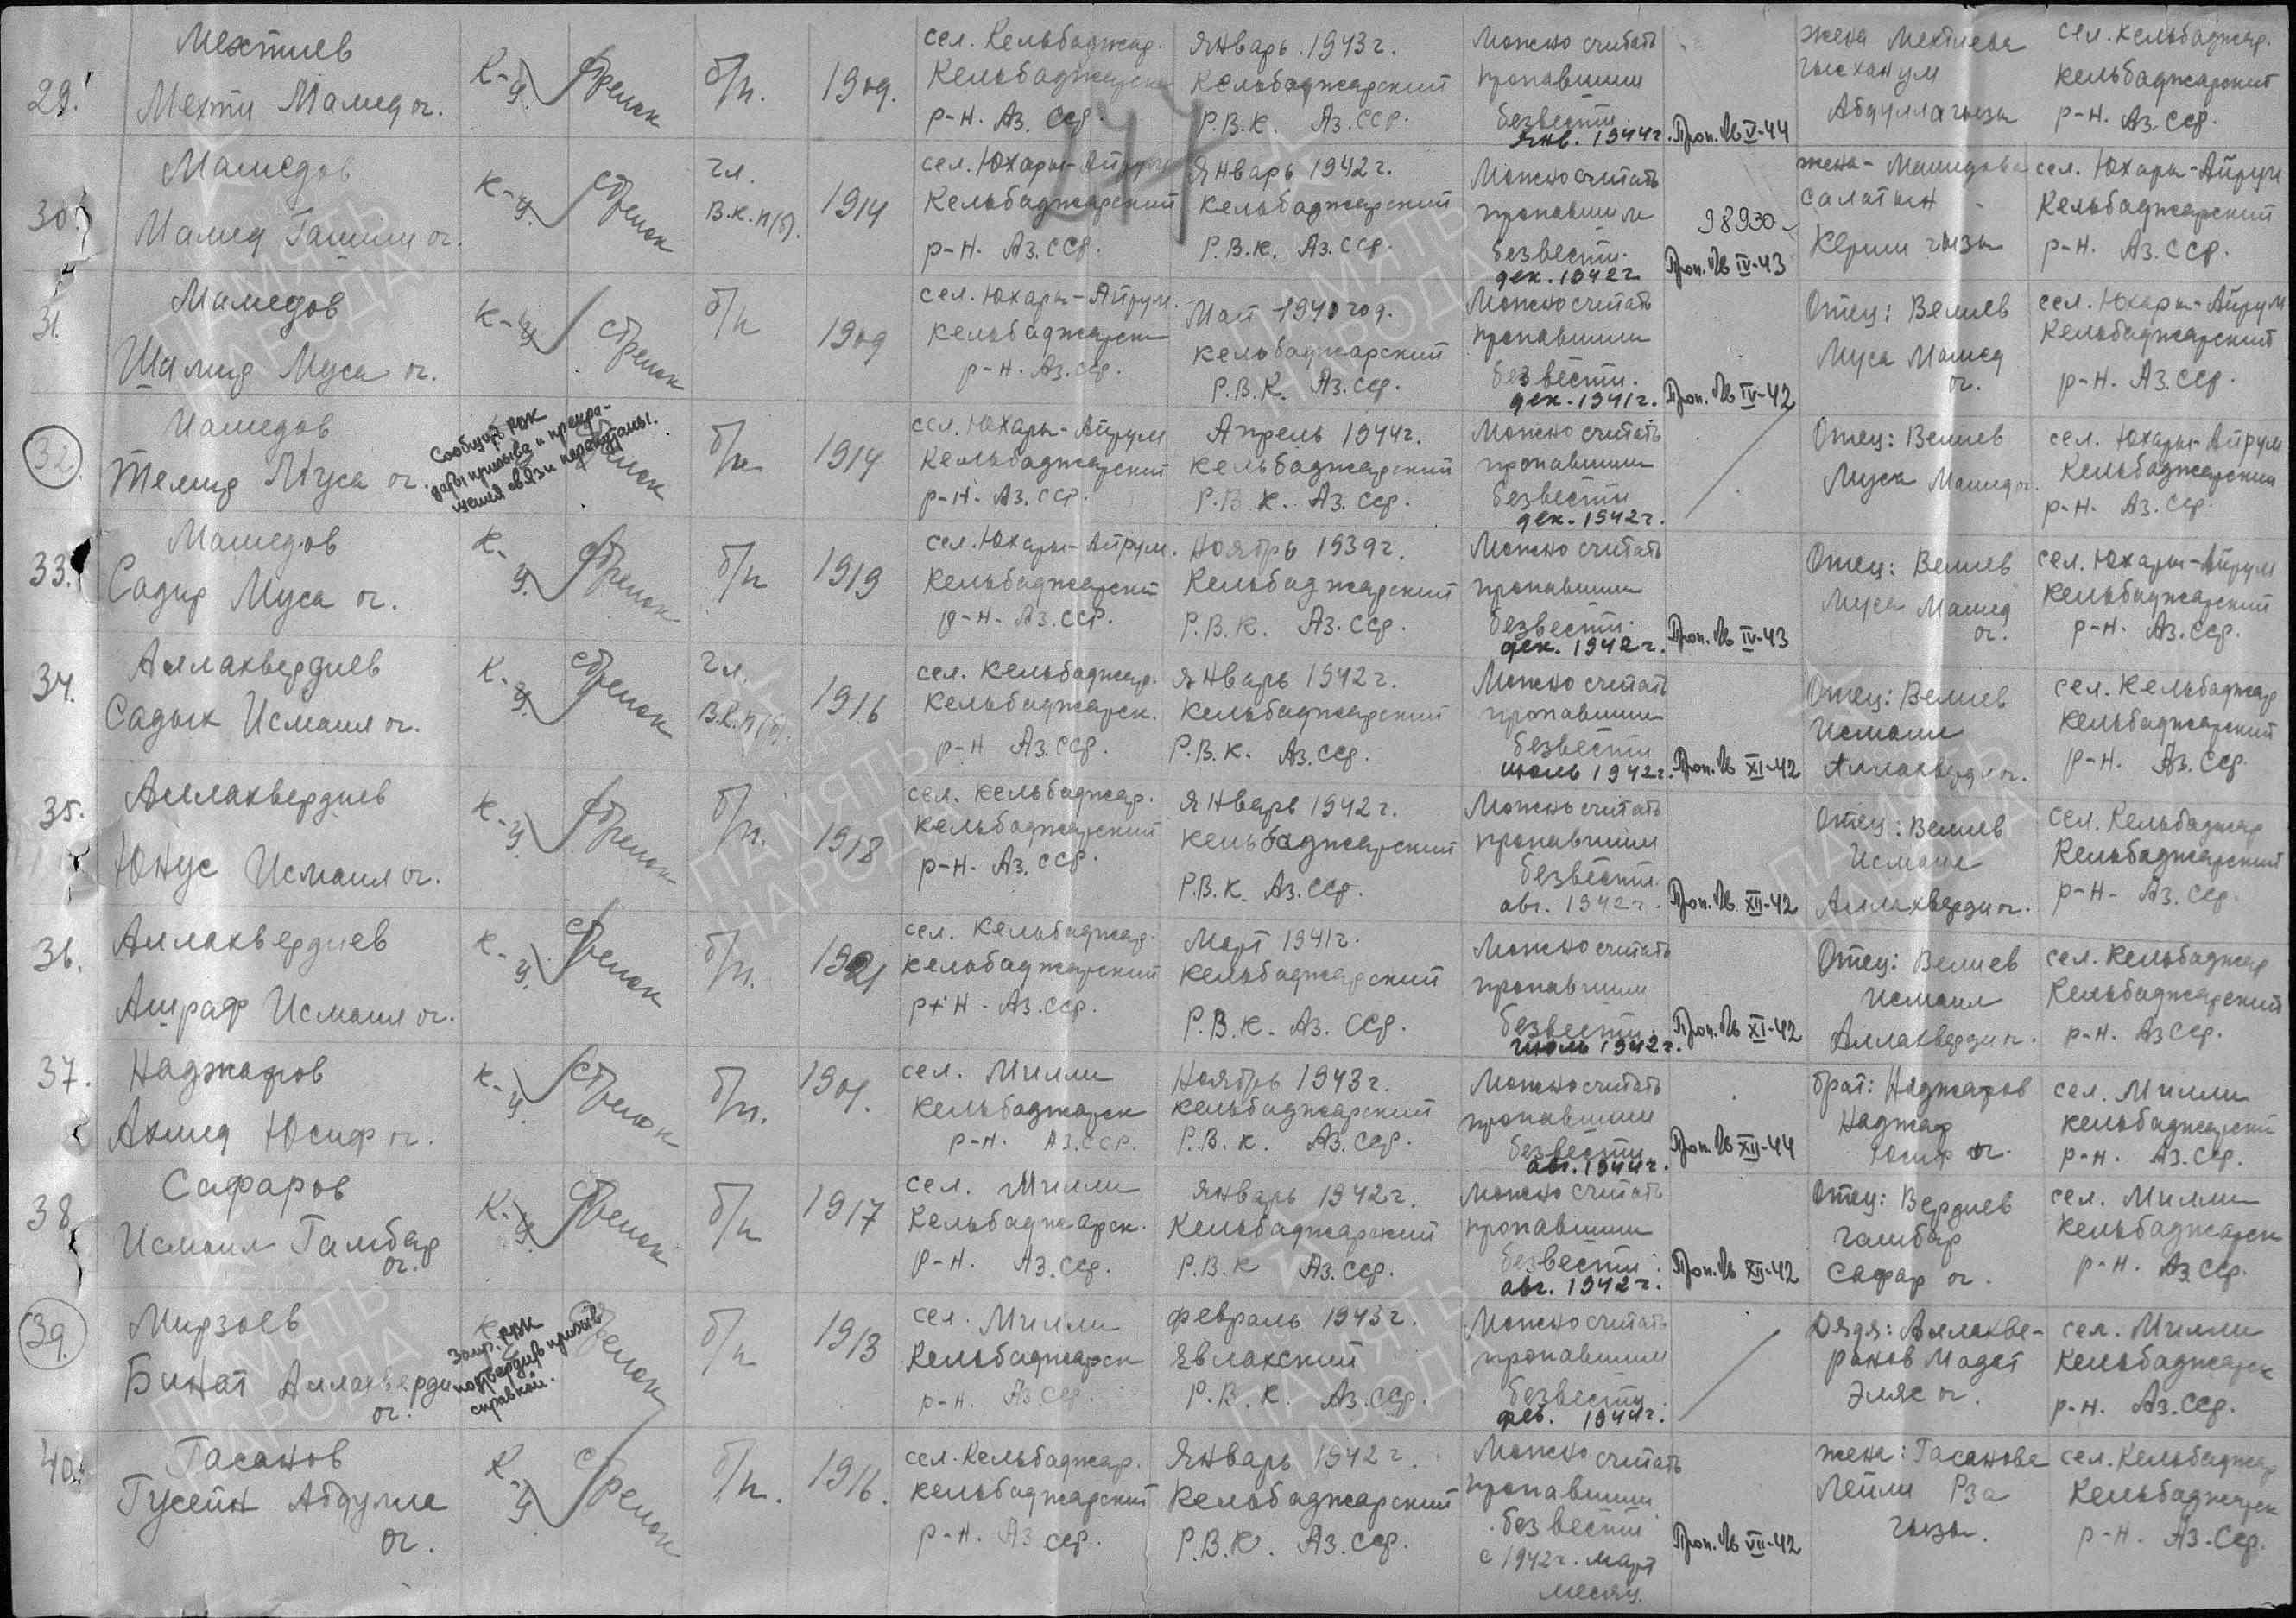 29.
Мехтиев
Мехти Мамед ог.
К-ц
Стрелок
б/п.
1909.
сел. Кельбаджар.
Кельбаджарск
р-н. Аз. ССР.
Январь 1943 г.
Кельбаджарский
Р.В.К. Аз. ССР.
Можно считать
пропавшим
безвести.
янв. 1944 г.
Проп. V-44
жена Мехтиева
Абдулла гызы
сел. Кельбаджар.
Кельбаджарский
р-н. Аз. ССР.
30.
Мамедов
Мамед Гашим ог.
К-ц
стрелок
чл.
В.К.П(б).
1914
сел. Юхары-Айрум
Кельбаджарский
р-н. Аз. ССР.
Январь 1942 г.
Кельбаджарский
Р.В.К. Аз. ССР.
Можно считать
пропавшим
безвести.
дек. 1942 г
98930
Проп. IV-43
жена - Мамедова
Салатын
Керим гызы
сел. Юхары-Айрум
Кельбаджарский
р-н. Аз. ССР.
31.
Мамедов
Шамид Муса ог.
К-ц
стрелок
б/п
1909
сел. Юхары-Айрум.
Кельбаджарски
р-н. Аз. ССР.
1940 год.
Кельбаджарский
Р.В.К. Аз. ССР.
Можно считать
пропавшим
безвести.
дек. 1941 г.
Проп. IV-42
Отец: Велиев
Муса Мамед
ог.
сел. Юхары-Айрум
Кельбаджарский
р-н. Аз. ССР.
32.
Мамедов
Телид Муса ог.
Сообщить РВК
даты призыва и прекра-
связи
Стрелок
б/п
1914
сел. Юхары-Айрум
Кельбаджарский
р-н. Аз. ССР.
Апрель 1944 г.
Кельбаджарский
Р.В.К. Аз. ССР.
Можно считать
пропавшим
безвести
дек. 1942 г.
Отец: Велиев
Муса Мамед ог.
сел. Юхары-Айрум
Кельбаджарский
р-н. Аз. ССР.
33.
Мамедов
Садир Муса ог.
К-ц.
Стрелок
б/п
1919
сел. Юхары-Айрум.
Кельбаджарский
р-н. Аз. ССР.
Ноябрь 1939 г.
Кельбаджарский
Р.В.К. Аз. ССР.
Можно считать
пропавшим
безвести.
дек. 1942 г.
Проп. IV-43
Отец: Велиев
Муса Мамед
ог.
сел. Юхары-Айрум
Кельбаджарский
р-н. Аз. ССР.
34.
Аллахвердиев
Садых Исмаил ог.
К-ц.
стрелок
чл.
В.К.П(б).
1916
сел. Кельбаджар.
Кельбаджарск.
р-н Аз. ССР.
Январь 1942 г.
Кельбаджарский
Р.В.К. Аз. ССР.
Можно считать
пропавшим
безвести
июль 1942 г.
Проп. XI-42
Отец: Велиев
Исмаил
Аллахверди ог.
сел. Кельбаджар
Кельбаджарский
р-н. Аз. ССР.
35.
Аллахвердиев
Юнус Исмаил ог.
К-ц.
Стрелок
б/п.
1918
сел. Кельбаджар.
Кельбаджарский
р-н. Аз. ССР.
Январь 1942 г.
Кельбаджарский
Р.В.К. Аз. ССР.
Можно считать
пропавшим
безвести.
авг. 1942 г.
Проп. XII-42
Отец: Велиев
Исмаил
Аллахверди ог.
сел. Кельбаджар
Кельбаджарский
р-н. Аз. ССР.
36.
Аллахвердиев
Ашраф Исмаил ог.
К-ц.
Стрелок
б/п.
1921
сел. Кельбаджар.
Кельбаджарский
р-н. Аз. ССР.
Март 1941 г.
Кельбаджарский
Р.В.К. Аз. ССР.
Можно считать
пропавшим
безвести.
июль 1942 г.
Проп. XI-42
Отец: Велиев
Исмаил
Аллахверди ог.
сел. Кельбаджар
Кельбаджарский
р-н. Аз ССР.
37.
Наджафов
Ахмед Юсиф ог.
К-ц
Стрелок
б/п.
1901.
сел. Милли
Кельбаджарск
р-н. Аз. ССР.
Ноябрь 1943 г.
Кельбаджарский
Р.В.К. Аз. ССР.
Можно считать
пропавшим
безвести
авг. 1944 г.
Проп. XII-44
брат: Наджафов
Наджаф
Юсиф ог.
сел. Милли
Кельбаджарски
р-н. Аз. ССР.
38.
Сафаров
Исмаил Гамбар
ог.
К-ц.
Стрелок
б/п
1917
сел. Милли
Кельбаджарск.
р-н. Аз. ССР.
Январь 1942 г.
Кельбаджарский
Р.В.К Аз. ССР.
Можно считать
пропавшим
безвести.
авг. 1942 г.
Проп. XII-42
Отец: Вердиев
Гамбар
Сафар ог.
сел. Милли
Кельбаджарск
р-н. Аз ССР.
39.
Мирзоев
Бинат Аллахверди
ог.
Запр. РВК
подтвердив призыв
справкой.
Стрелок
б/п
1913
сел. Милли
Кельбаджарск
р-н. Аз ССР.
февраль 1943 г.
Евлахский
Р.В.К. Аз. ССР.
Можно считать
пропавшим
безвести.
фев. 1944 г.
Дядя: Аллахве-
ранов Мадат
Эляс ог.
сел. Милли
Кельбаджарск
р-н. Аз. ССР.
40.
Гасанов
Гусейн Абдулла
ог.
К-ц
Стрелок
б/п.
1916.
сел. Кельбаджар.
Кельбаджарский
р-н. Аз ССР.
Январь 1942 г.
Кельбаджарский
Р.В.К. Аз. ССР.
Можно считать
пропавшим
безвести
с 1942 г. март
месяц.
Проп. VII-42
жена: Гасанова
Лейли Рза
гызы.
сел. Кельбаджар
Кельбаджарск
р-н. Аз. ССР.
ПАМЯТЬ
НАРОДА